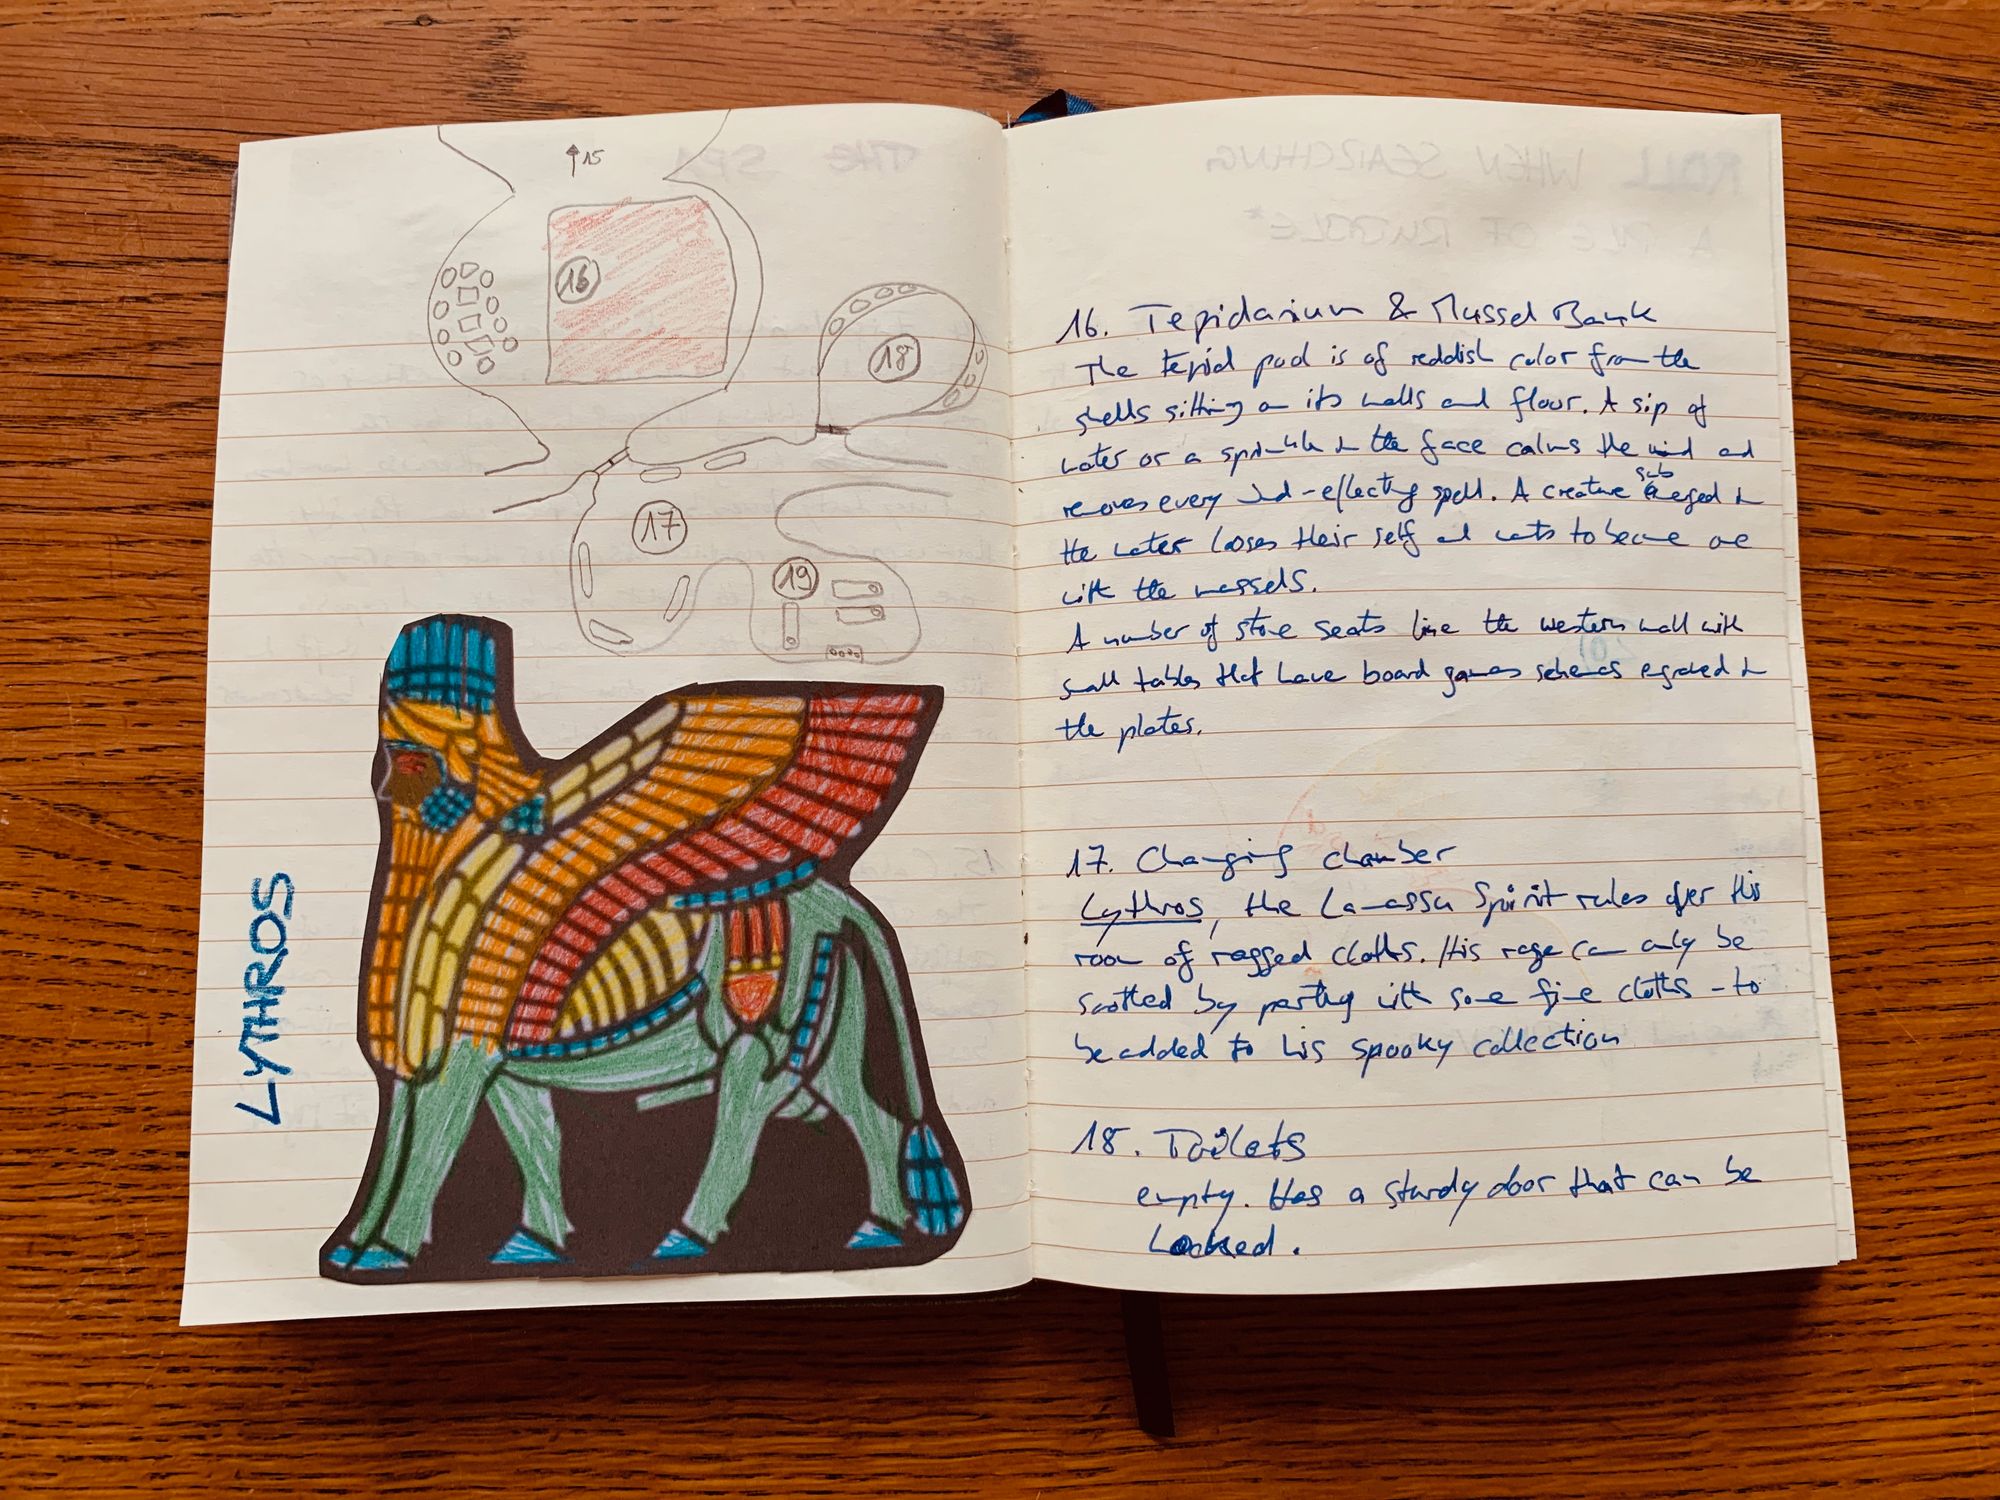 ↑15
16
18
17
19
LYTHROS
16. Tepidarium & Mussel Bank
The tepid pool is of reddish color from the
shells sitting on its walls and floor. A sip of
water or a sprinkle in the face calms the mind and
removes every mind-effecting spell. A creature submerged in
the water looses their self and wants to become one
with the mussels.
A number of stone seats line the western wall with
small tables that have board games schemas engraved in
the plates.
17. Changing chamber
Lythros, the Lamassu Spirit rules over this
room of ragged cloths. His rage can only be
sootted by parting with some fine cloths - to
be added to his spooky collection
18. Toilets
empty. Has a sturdy door that can be
Locked.
ROLL WHEN SEARCHING
A PILE OF RUBBLE*
THE SPA